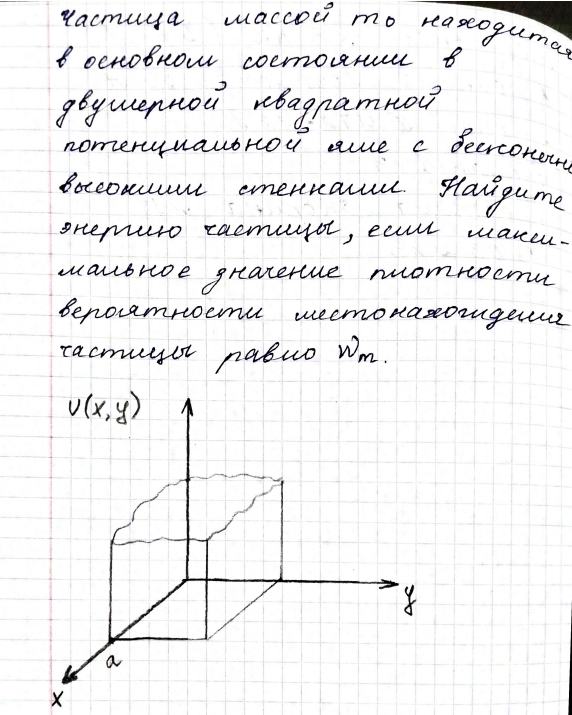 частица массой m₀ находится
в основном состоянии в
двумерной квадратной
потенциальной яме с бесконечно
высокими стенками. Найдите
энергию частицы, если макси-
мальное значение плотности
вероятности местонахождения
частицы равно Wm.
U(x,y)
y
a
x